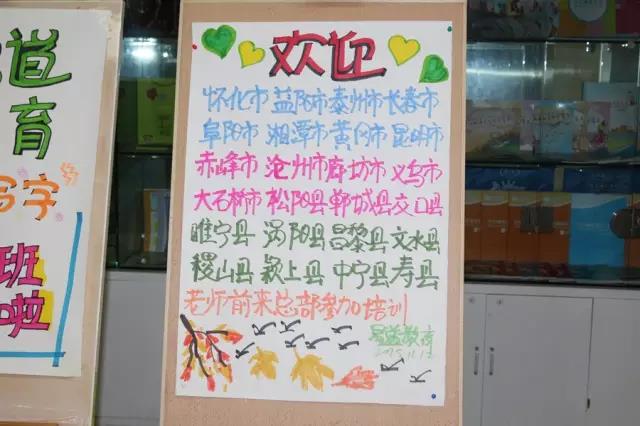 道
育
写字
班
啦
欢迎
怀化市 益阳市 泰州市 长春市
阜阳市 湘潭市 黄冈市 昆明市
赤峰市 沧州市 廊坊市 义乌市
大石桥市 松阳县 郸城县 交口县
睢宁县 涡阳县 昌黎县 文水县
稷山县 颍上县 中宁县 寿县
老师前来总部参加培训